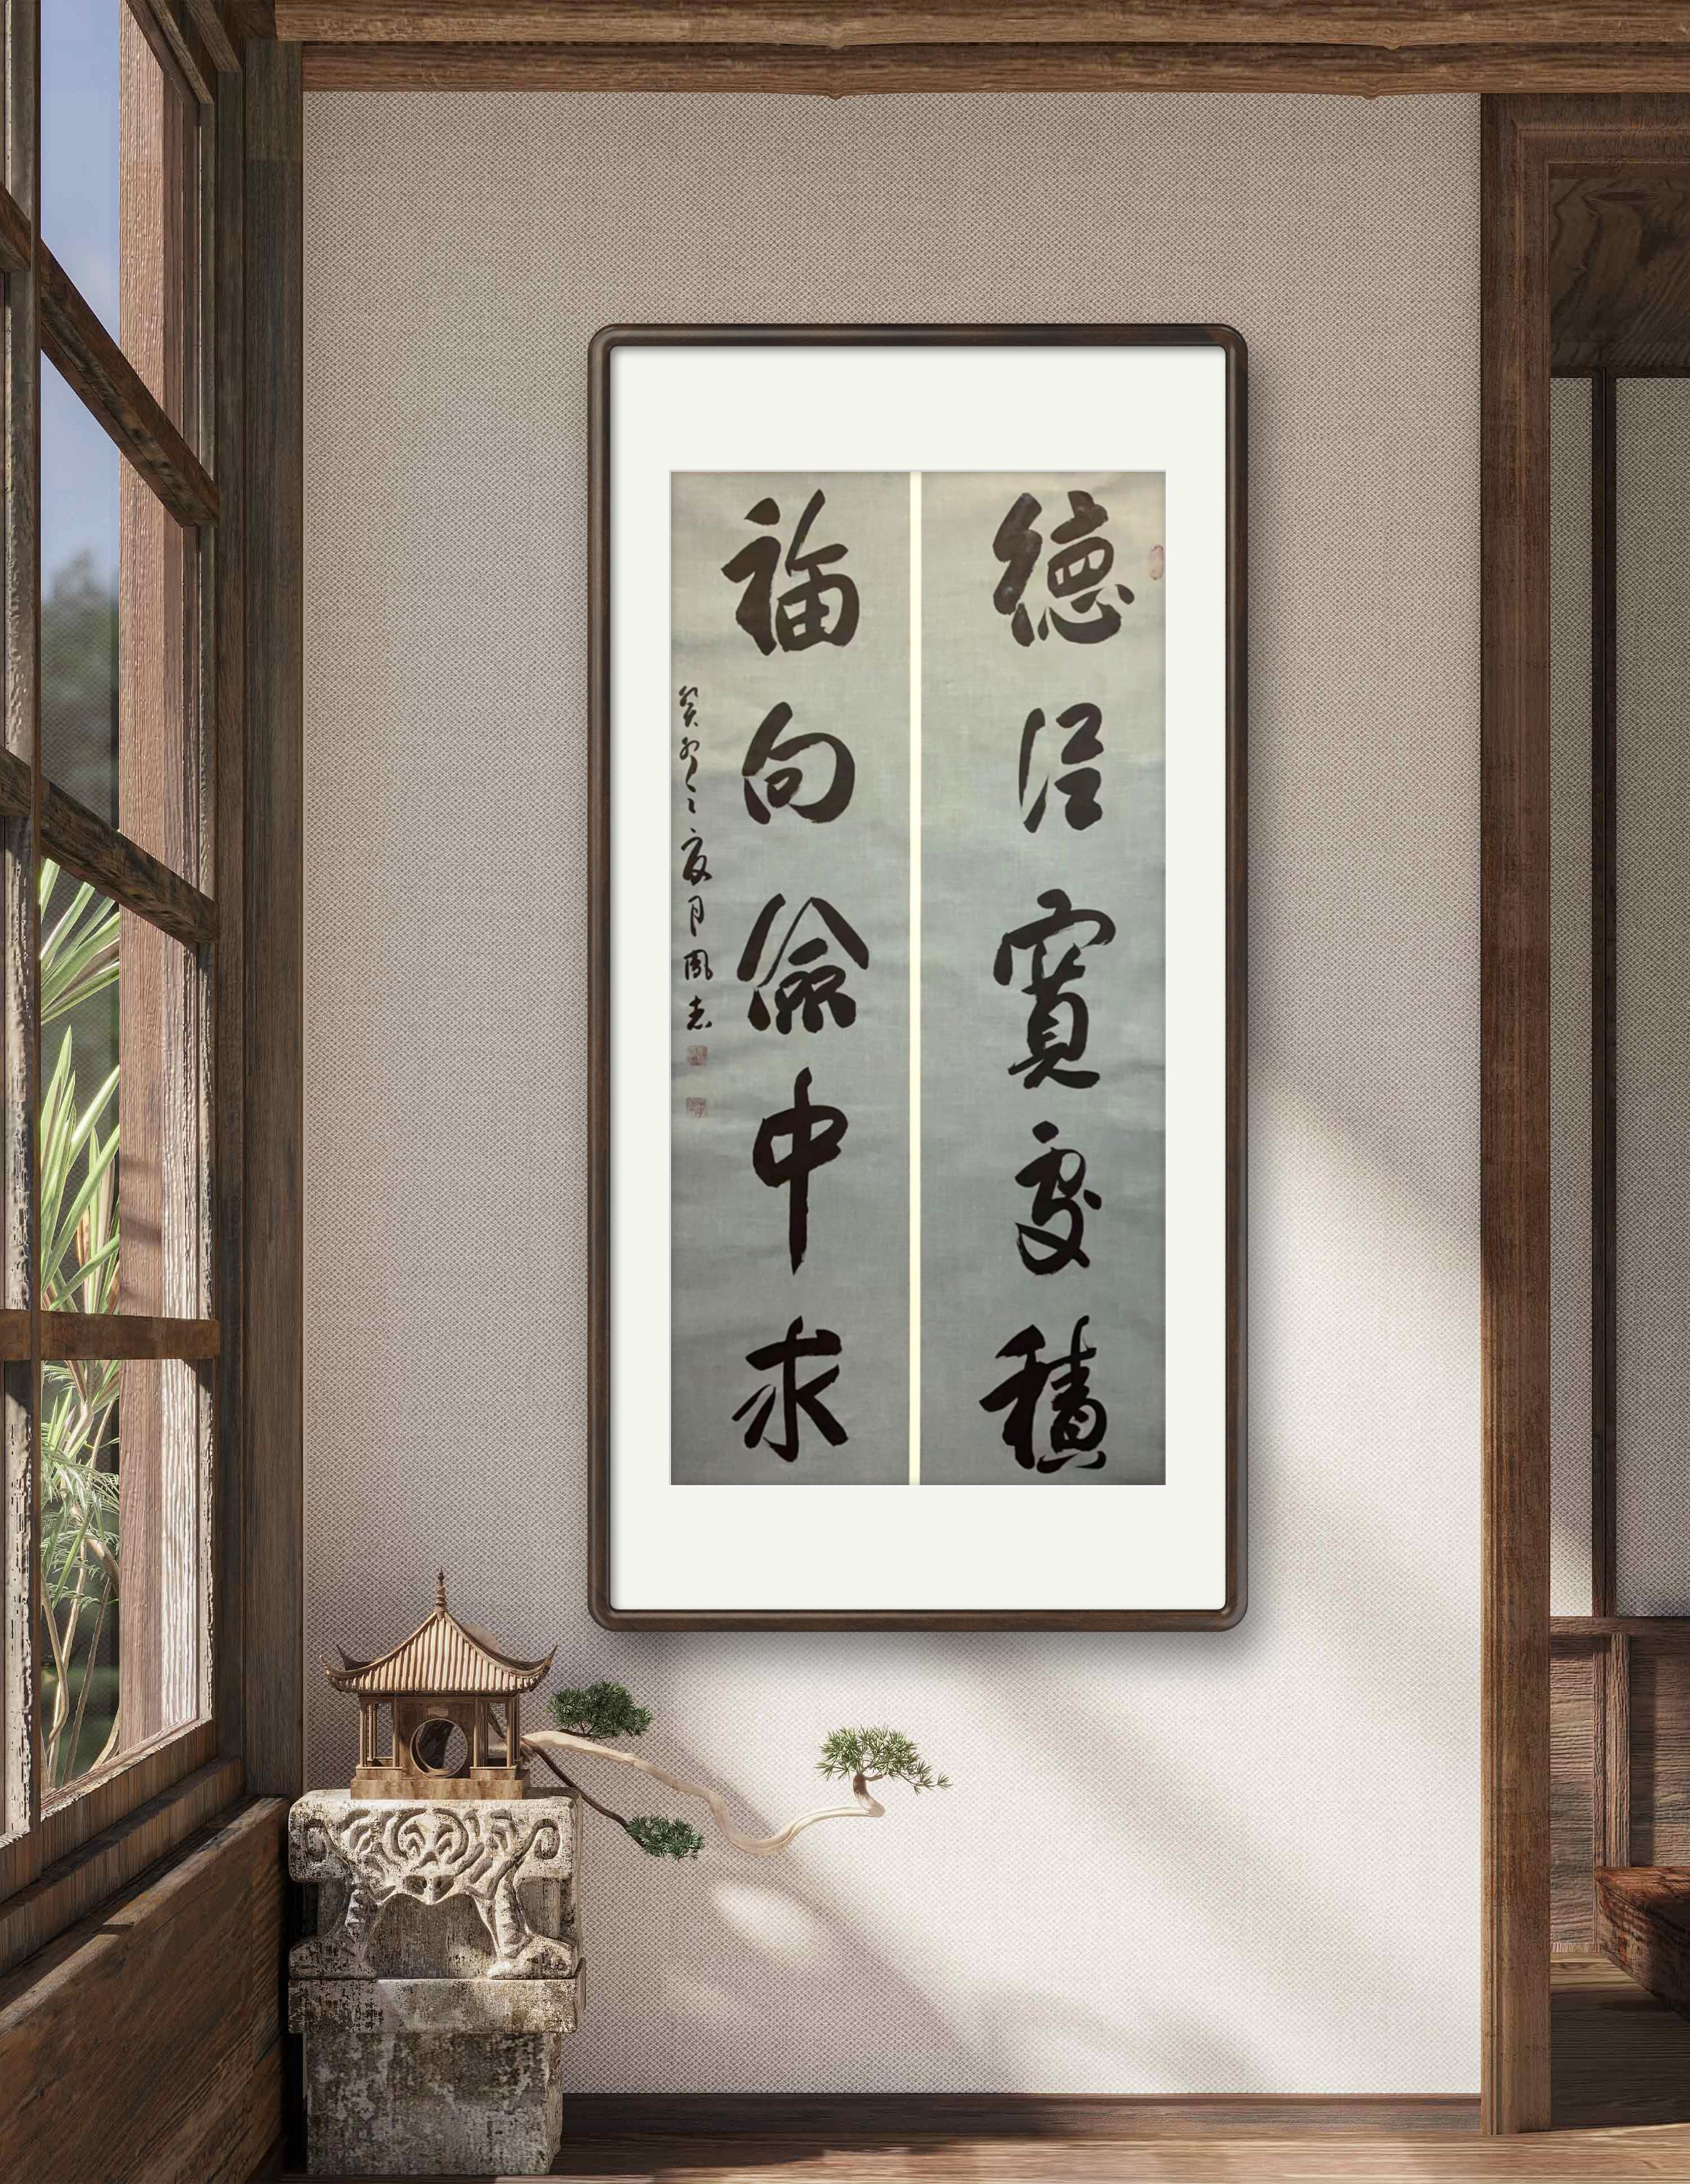 德從寬處積
福向儉中求
癸卯之夏月鳳志